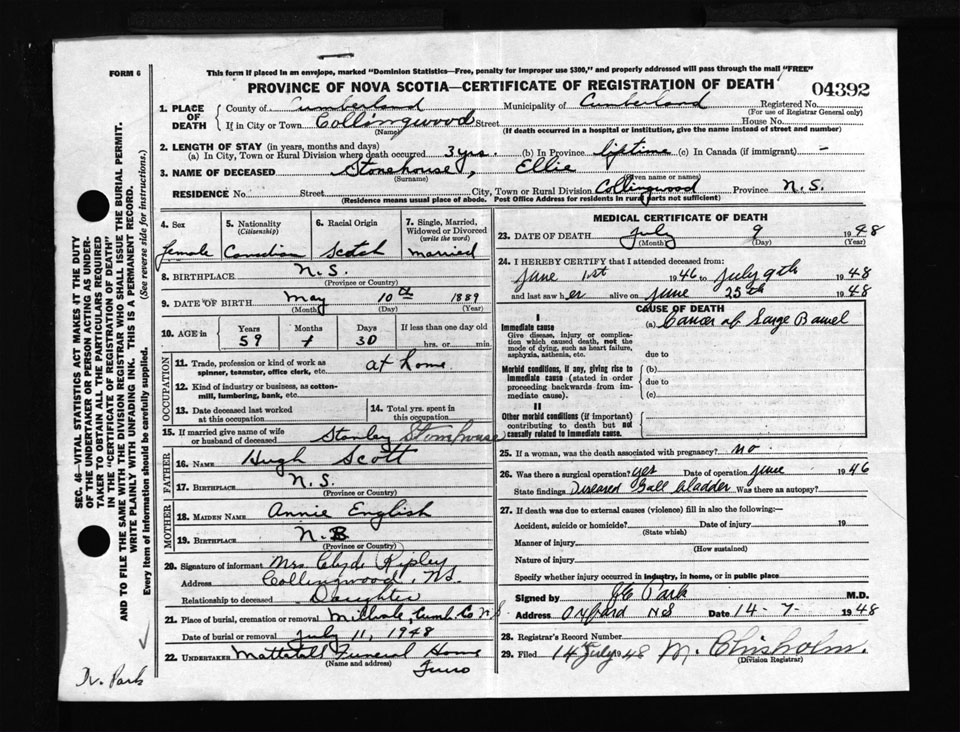 FORM 6
This form if placed in an envelope, marked "Dominion Statistics—Free, penalty for improper use $300," and properly addressed will pass through the mail "FREE"
PROVINCE OF NOVA SCOTIA—CERTIFICATE OF REGISTRATION OF DEATH
04392
1. PLACE OF DEATH
County of Cumberland Municipality of Cumberland Registered No.
(For use of Registrar General only)
If in City or Town Collingwood Street House No.
(Name) (If death occurred in a hospital or institution, give the name instead of street and number)
2. LENGTH OF STAY (in years, months and days)
(a) In City, Town or Rural Division where death occurred 3 yrs. (b) In Province liftime (c) In Canada (if immigrant) -
3. NAME OF DECEASED Stonehouse, Ellie
(Surname) (Given name or names)
RESIDENCE No. Street City, Town or Rural Division Collingwood Province N.S.
(Residence means usual place of abode. Post Office Address for residents in rural parts not sufficient)
4. Sex
female
5. Nationality (Citizenship)
Canadian
6. Racial Origin
Scotch
7. Single, Married, Widowed or Divorced (write the word)
married
8. BIRTHPLACE N.S.
(Province or Country)
9. DATE OF BIRTH May 10th 1889
(Month) (Day) (Year)
10. AGE in
Years Months Days If less than one day old
59 1 30 hrs. or min.
OCCUPATION
11. Trade, profession or kind of work as spinner, teamster, office clerk, etc. at home
12. Kind of industry or business, as cotton-mill, lumbering, bank, etc.
13. Date deceased last worked at this occupation
14. Total yrs. spent in this occupation
15. If married give name of wife or husband of deceased Stanley Stonehouse
FATHER
16. NAME Hugh Scott
17. BIRTHPLACE N.S.
(Province or Country)
MOTHER
18. MAIDEN NAME Annie English
19. BIRTHPLACE N.B
(Province or Country)
20. Signature of informant Mrs Clyde Ripley
Address Collingwood, N.S.
Relationship to deceased Daughter
21. Place of burial, cremation or removal Millvale, Cumb. Co N.S
Date of burial or removal July 11, 1948
22. UNDERTAKER Mattatall Funeral Home
(Name and address)
Truro
MEDICAL CERTIFICATE OF DEATH
23. DATE OF DEATH July 9 1948
(Month) (Day) (Year)
24. I HEREBY CERTIFY that I attended deceased from:
June 1st 1946 to July 9th 1948
and last saw her alive on June 25th 1948
CAUSE OF DEATH
I
Immediate cause
Give disease, injury or complication which caused death, not the mode of dying, such as heart failure, asphyxia, asthenia, etc.
(a) Cancer of Large Bowel
due to
Morbid conditions, if any, giving rise to immediate cause (stated in order proceeding backwards from immediate cause).
(b)
due to
(c)
II
Other morbid conditions (if important) contributing to death but not causally related to immediate cause.
25. If a woman, was the death associated with pregnancy? no
26. Was there a surgical operation? yes Date of operation June 1946
State findings Diseased Gall bladder Was there an autopsy?
27. If death was due to external causes (violence) fill in also the following:—
Accident, suicide or homicide? Date of injury 19
(State which)
Manner of injury
(How sustained)
Nature of injury
Specify whether injury occurred in industry, in home, or in public place
Signed by Park M.D.
Address Oxford NS Date 14-7- 1948
28. Registrar's Record Number
29. Filed 14th July 1948 M. Chisholm.
(Division Registrar)
SEC. 46—VITAL STATISTICS ACT MAKES IT THE DUTY
OF THE UNDERTAKER OR PERSON ACTING AS UNDER-
TAKER TO OBTAIN ALL THE PARTICULARS REQUIRED
IN THE "CERTIFICATE OF REGISTRATION OF DEATH"
AND TO FILE THE SAME WITH THE DIVISION REGISTRAR WHO SHALL ISSUE THE BURIAL PERMIT.
WRITE PLAINLY WITH UNFADING INK. THIS IS A PERMANENT RECORD.
Every item of information should be carefully supplied. (See reverse side for instructions.)
Dr. Park